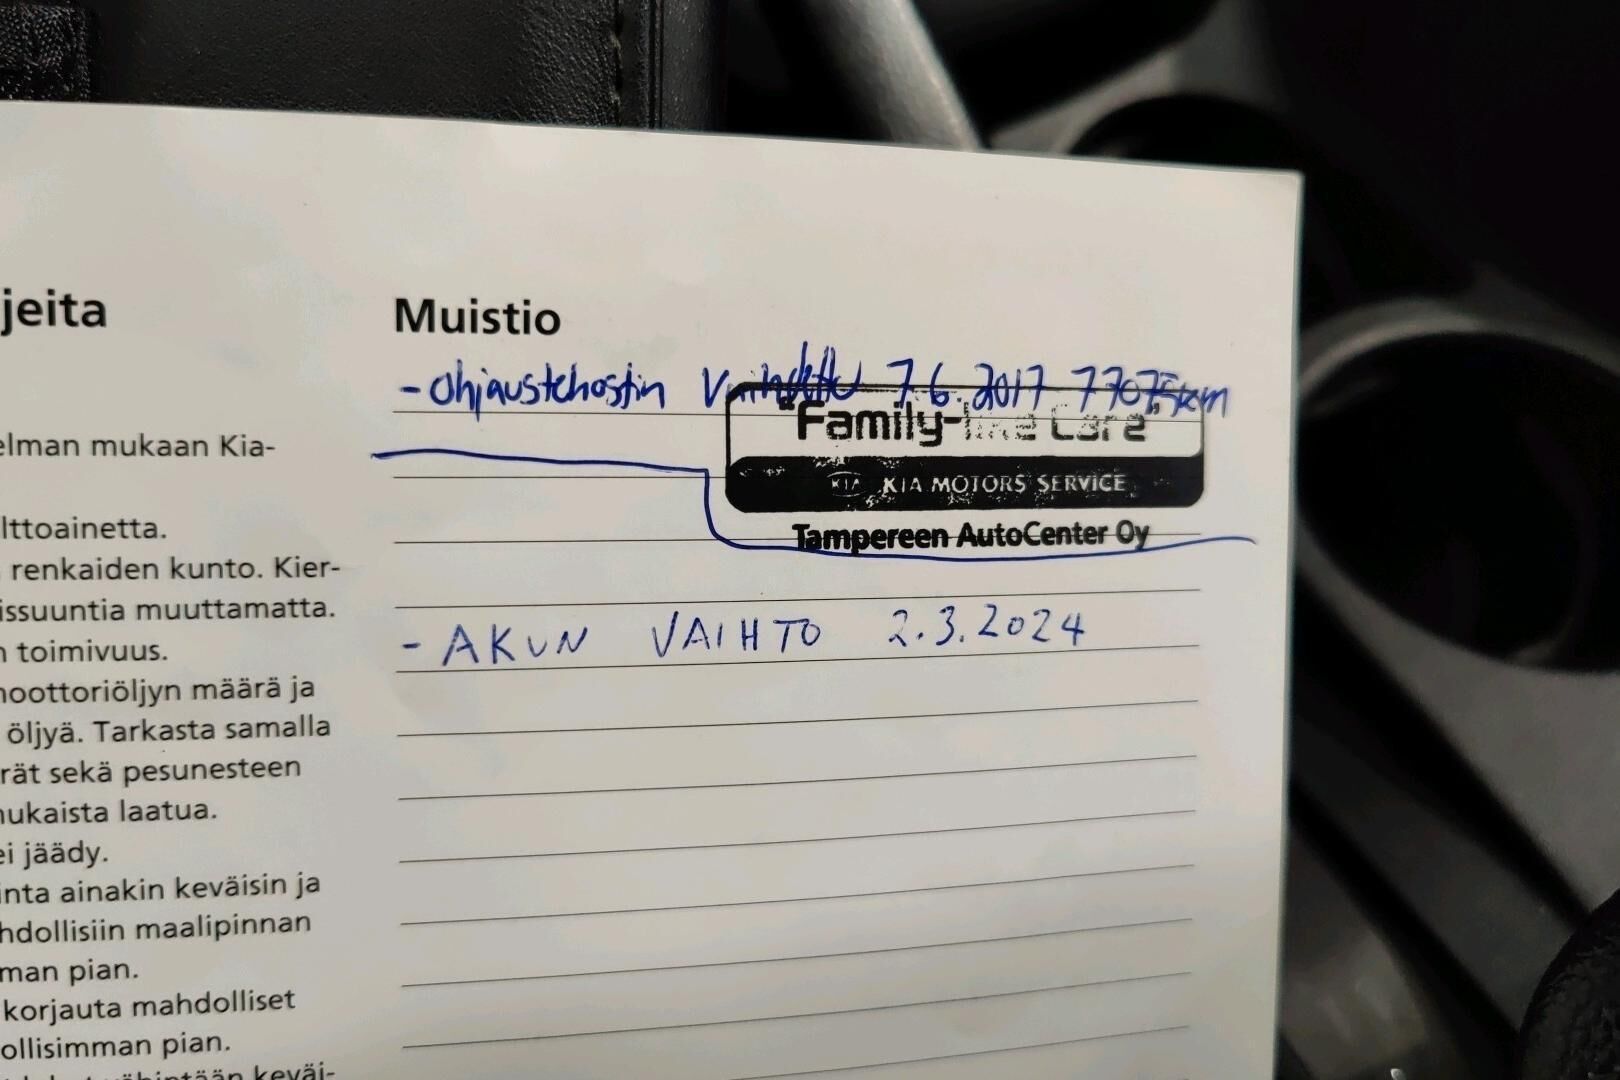 jeita
elman mukaan Kia-
lttoainetta.
renkaiden kunto. Kier-
issuuntia muuttamatta.
n toimivuus.
noottoriöljyn määrä ja
öljyä. Tarkasta samalla
rät sekä pesunesteen
nukaista laatua.
ei jäädy.
inta ainakin keväisin ja
hdollisiin maalipinnan
man pian.
korjauta mahdolliset
ollisimman pian.
vähintään keväi-
Muistio
- Ohjaustehostin Vaihdettu 7.6.2017 77075km
"Family-like Care"
KIA KIA MOTORS SERVICE
Tampereen AutoCenter Oy
- AKUN VAIHTO 2.3.2024